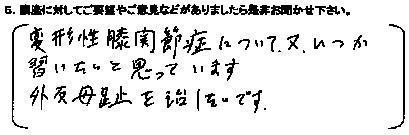 5. 講座に対してご要望やご意見などがありましたら是非お聞かせ下さい。
変形性膝関節症について、又、いつか
習いたいと思っています
外反母趾を治したいです。